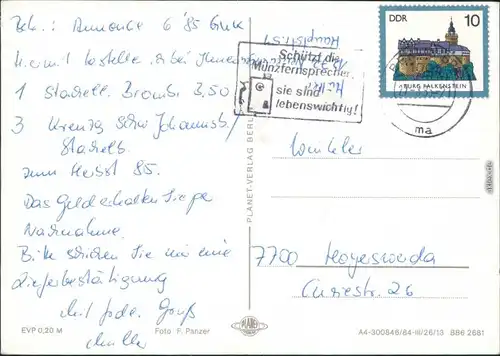 Betr.: Annonce 6 '85
Hiermit bestelle bei Ihnen
1 Stachelb. Bromb. 3,50
3 Kreuzg. Johannisb/
Stachelb.
zum Herbst 85.
Das Geld erhalten Sie per
Nachnahme.
Bitte schicken Sie mir eine
Lieferbestätigung
Mit frdl. Gruß
EVP 0,20 M
Foto F. Panzer
PLANET-VERLAG BERLIN
PLANET
Hauptstr. 51
Schützt die
Münzfernsprecher.
sie sind
lebenswichtig!
DDR 10
BURG FALKENSTEIN
ma
Winkler
7700 Hoyerswerda
Curiestr. 26
A4-300846/84-III/26/13 BB6 2681